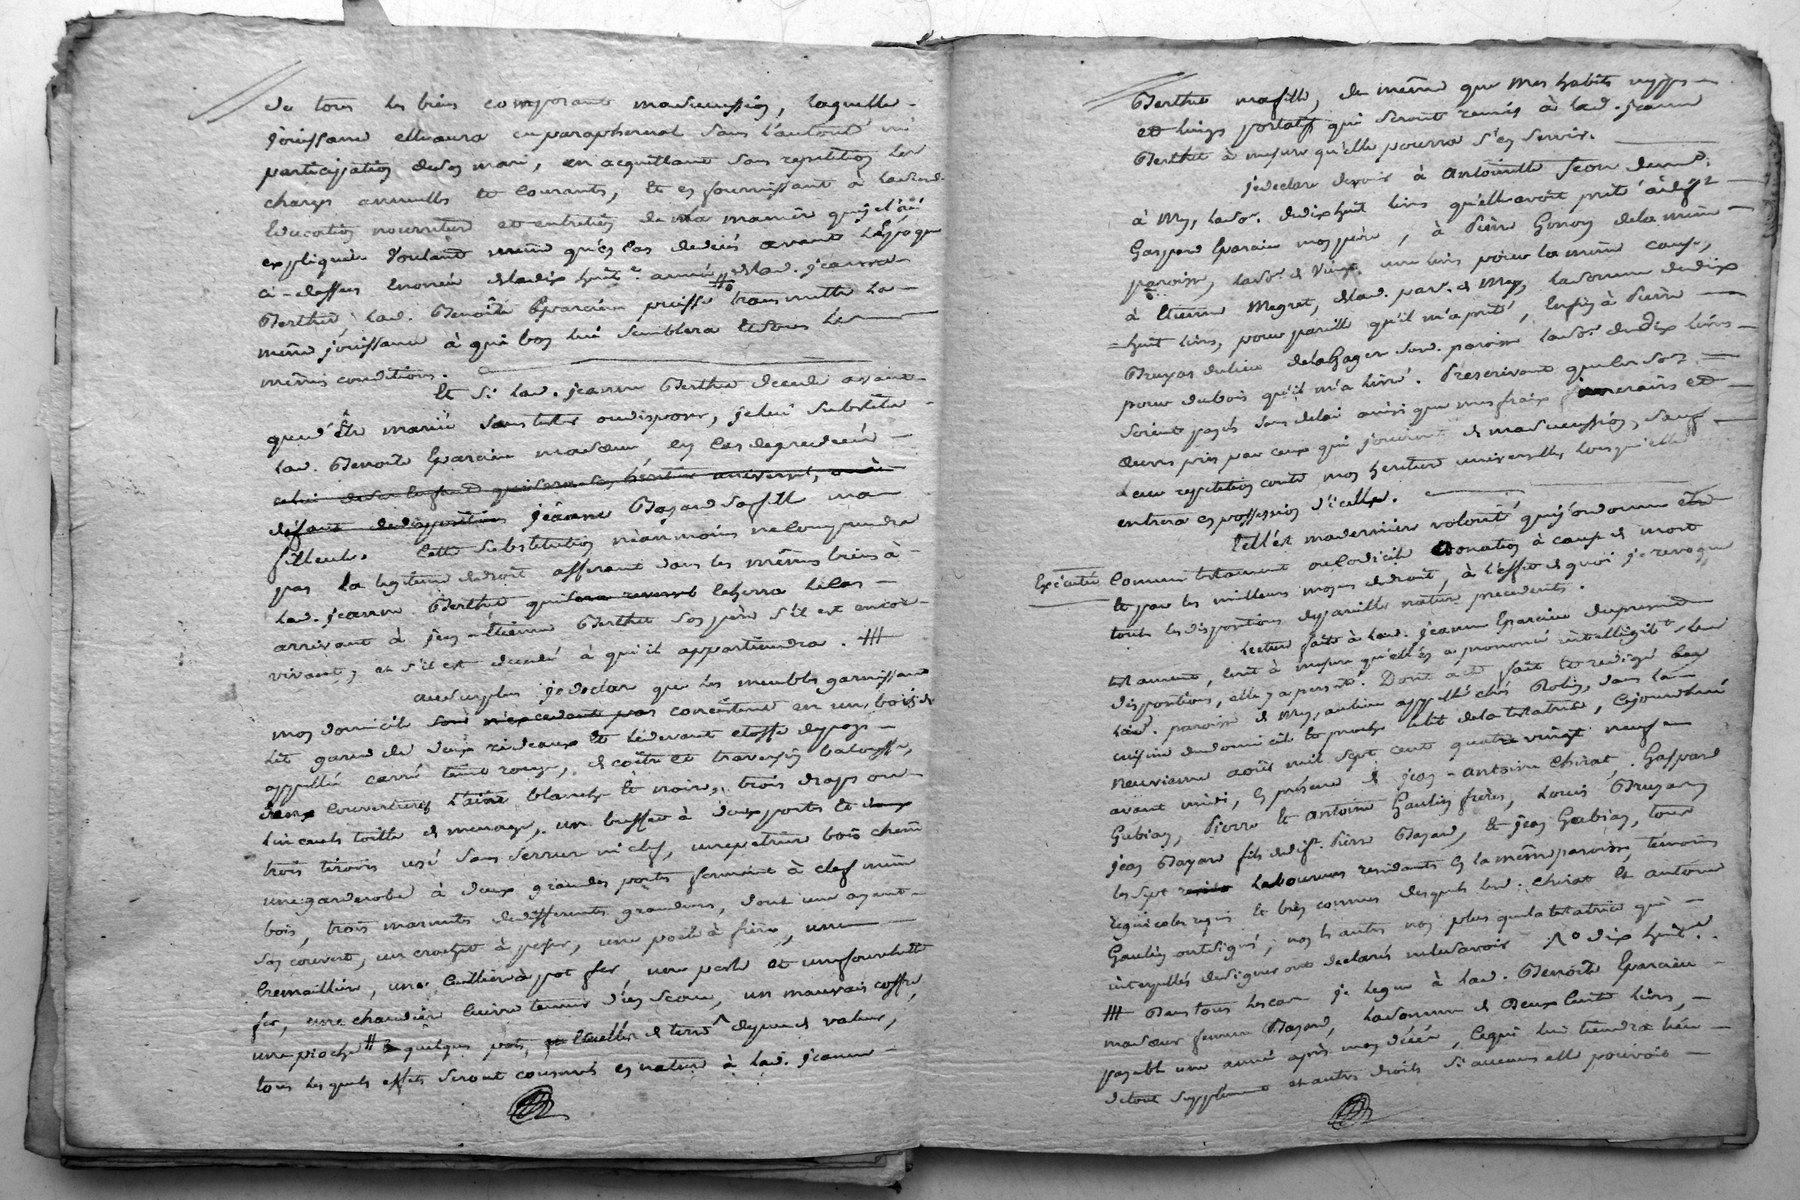 de tous les biens composant ma succession, laquelle
jouissance elle aura en paraphernal sans l'autorité ni
participation de son mari, en acquittant sans repetition les
charges annuelles et courantes, et en fournissant à lad.
education nourriture et entretien de la maniere qui j'ai
expliquée voulant même qu'en cas de décès avant l'époque
ci-dessus énoncée de la dix huit.e année de lad. jeanne
Berthet lad. Benoite Eparcieu puisse transmettre la
même jouissance à qui bon lui semblera et sous les
mêmes conditions.
Et si lad. jeanne Berthet decede avant
que d'être mariée sans tester ou disposer, je lui substitue
lad. Benoite Eparcieu ma sœur en cas de predécés
celui de ses enfants qui sera son héritier universel, ou à
défaut de disposition jeanne Bayard sa fille ma
filleule. Cette substitution néanmoins ne comprendra
pas la legitime de droit afferant dans les mêmes biens à
lad. jeanne Berthet qui sera reversé le cas
arrivant à jean-Étienne Berthet son père s'il est encore
vivant, et s'il est decedé à qui il appartiendra. #
au surplus je declare que les meubles garnissant
mon domicile sont n'excedant pas consistent en un bois de
lit garni de deux rideaux et le devant etoffe du pays
appellée carré teint rouge, de coitre et traversin balouffe,
deux couvertures laine blanche et noire, trois draps ou
linceuls toille de menage, un buffet à deux portes et deux
trois tiroirs usé sans serrure ni clef, une petrière bois chene
une garderobe à deux grandes portes fermant à clef même
bois, trois marmites de differentes grandeurs, dont une ayant
son couvert, un crochet à peser, une poële à frire, une
cremaillière, une cuillier à pot fer, une pesle et une fourchette
fer, une chaudière cuivre tenant d'un seau, un mauvais coffre,
une pioche # quelques pots, de terre de peu de valeur,
tous lesquels effets seront conservés en nature à lad. jeanne
Berthet ma fille, de même que mes habits nippes
et linges portatifs qui seront remis à lad. jeanne
Berthet à mesure qu'elle pourra s'en servir.
je declare devoir à Antoinette Seon
à Mey, la so.e de dix huit livres qu'elle avoit preté à def.t
Gaspard Eparcieu mon père, à Pierre Gonon de la même
paroisse, la so.e de vingt une livres pour la même cause,
à Etienne Megret, de lad. par. de Mey, la somme de dix
huit livres, pour pareille qu'il m'a preté, enfin à Pierre
Bruyas du lieu de la Gagere sur d. paroisse la so.e de dix livres
pour du bois qu'il m'a livré. Prescrivant que les so.es
soient payés sans delai ainsi que mes fraix funeraires et
œuvres pies par ceux qui jouiront de ma succession, sauf
leur repetition contre mon heritiere universelle lorsqu'elle
entrera en possession d'icelle.
Telle est ma derniere volonté que j'ordonne être
Exécutée comme testament ou codicile donation à cause de mort
et par les meilleurs moyens de droit, à l'effet de quoi je revoque
toutes les dispositions de pareille nature precedentes.
Lecture faite à lad. jeanne Eparcieu du present
testament, écrit à mesure qu'elle en a prononcé intelligiblt les
dispositions, elle y a persisté. Dont acte fait et redigé
lad. paroisse de Mey, au lieu appellé chés Robin, dans la
cuisine du domicile et proche le lit de la testatrice, cejourdhui
neuvieme août mil sept cent quatre vingt neuf
avant midi, en présence de jean-antoine Chirat, Gaspard
Gubian, Pierre et antoine Gaulin freres, Louis Bruyas,
jean Bayard fils de def.t Pierre Bayard, et jean Gubian, tous
les sept laboureurs residants en la même paroisse, témoins
requis et bien connus desquels led. Chirat et antoine
Gaulin ont signé, non les autres non plus que la testatrice qui
interpellés de signer ont declarés ne le savoir. R.o dix huit.
# Dans tous les cas je legue à lad. Benoite Eparcieu
ma sœur femme Bayard, la somme de deux cents livres,
payable une année après mon décés, ce qui lui tiendra lieu
de tout supplément et autres droits si aucuns elle pouvoit